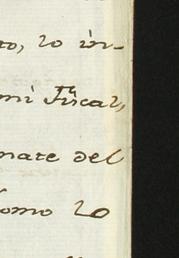 to, lo in-
mi Fiscal,
nare del
como lo